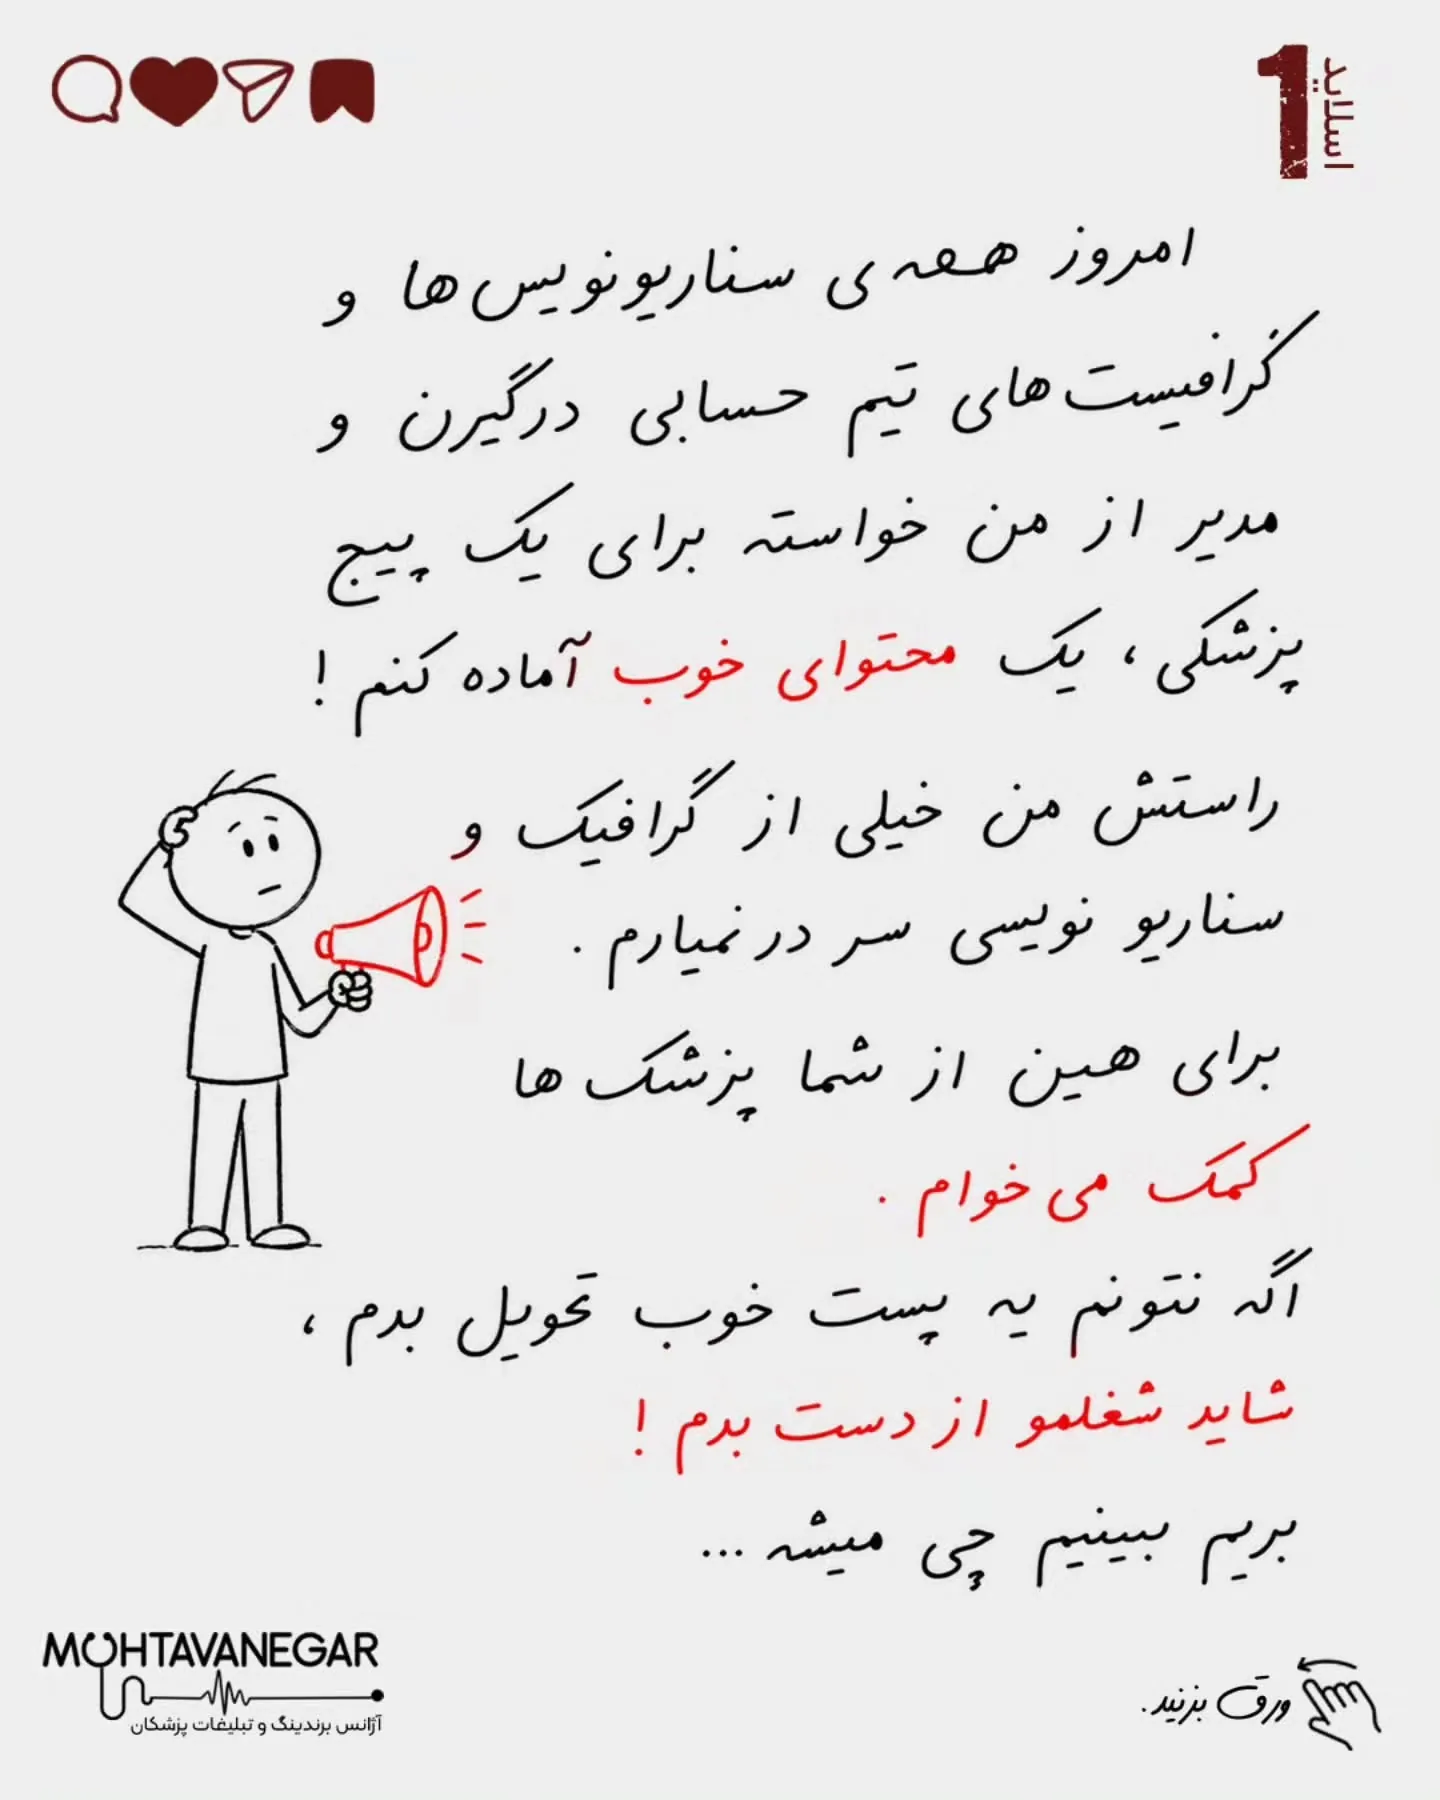 اسلاید 1
امروز همه ی سناریونویس ها و
گرافیست های تیم حسابی درگیرن و
مدیر از من خواسته برای یک پیج
پزشکی، یک محتوای خوب آماده کنم!
راستش من خیلی از گرافیک و
سناریو نویسی سر در نمیارم.
برای همین از شما پزشک ها
کمک می خوام.
اگه نتونم یه پست خوب تحویل بدم،
شاید شغلمو از دست بدم!
بریم ببینیم چی میشه...
MOHTAVANEGAR
آژانس برندینگ و تبلیغات پزشکان
ورق بزنید.